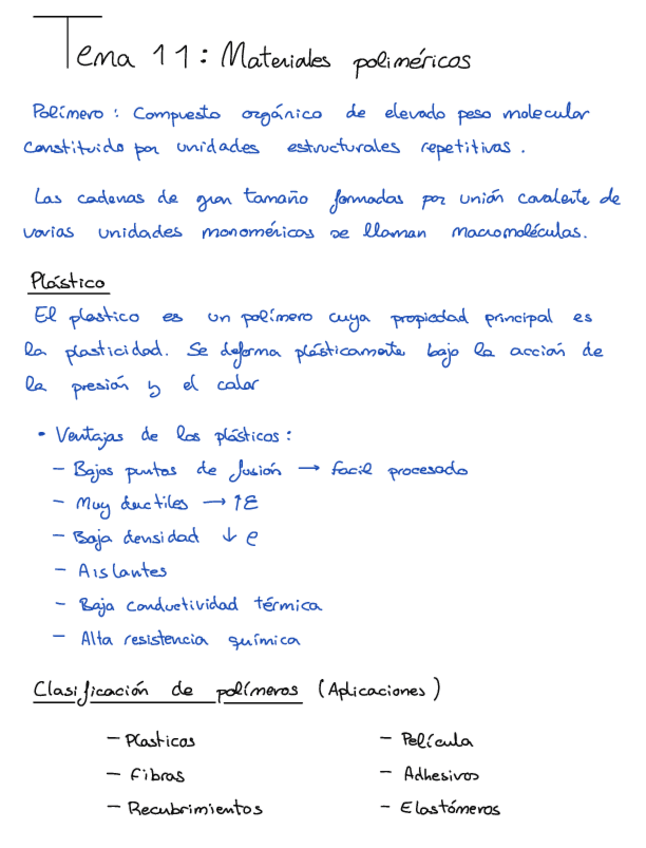 Tema 11: Materiales poliméricos
Polímero: Compuesto orgánico de elevado peso molecular
constituido por unidades estructurales repetitivas.
Las cadenas de gran tamaño formadas por unión covalente de
varias unidades monoméricas se llaman macromoléculas.
Plástico
El plastico es un polímero cuya propiedad principal es
la plasticidad. Se deforma plásticamente bajo la acción de
la presión y el calor
• Ventajas de los plásticos:
- Bajos puntos de fusión → facil procesado
- Muy ductiles → ↑ε
- Baja densidad ↓ρ
- Aislantes
- Baja conductividad térmica
- Alta resistencia química
Clasificación de polímeros (Aplicaciones)
- Plasticos
- Fibras
- Recubrimientos
- Película
- Adhesivos
- Elastómeros